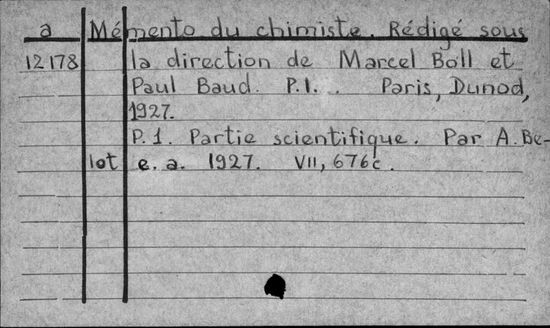 a Mémento du chimiste. Rédigé sous
12178 la direction de Marcel Boll et
Paul Baud. P.1. . Paris, Dunod,
1927.
P. 1. Partie scientifique. Par A. Be-
lot e. a. 1927. VII, 676c.